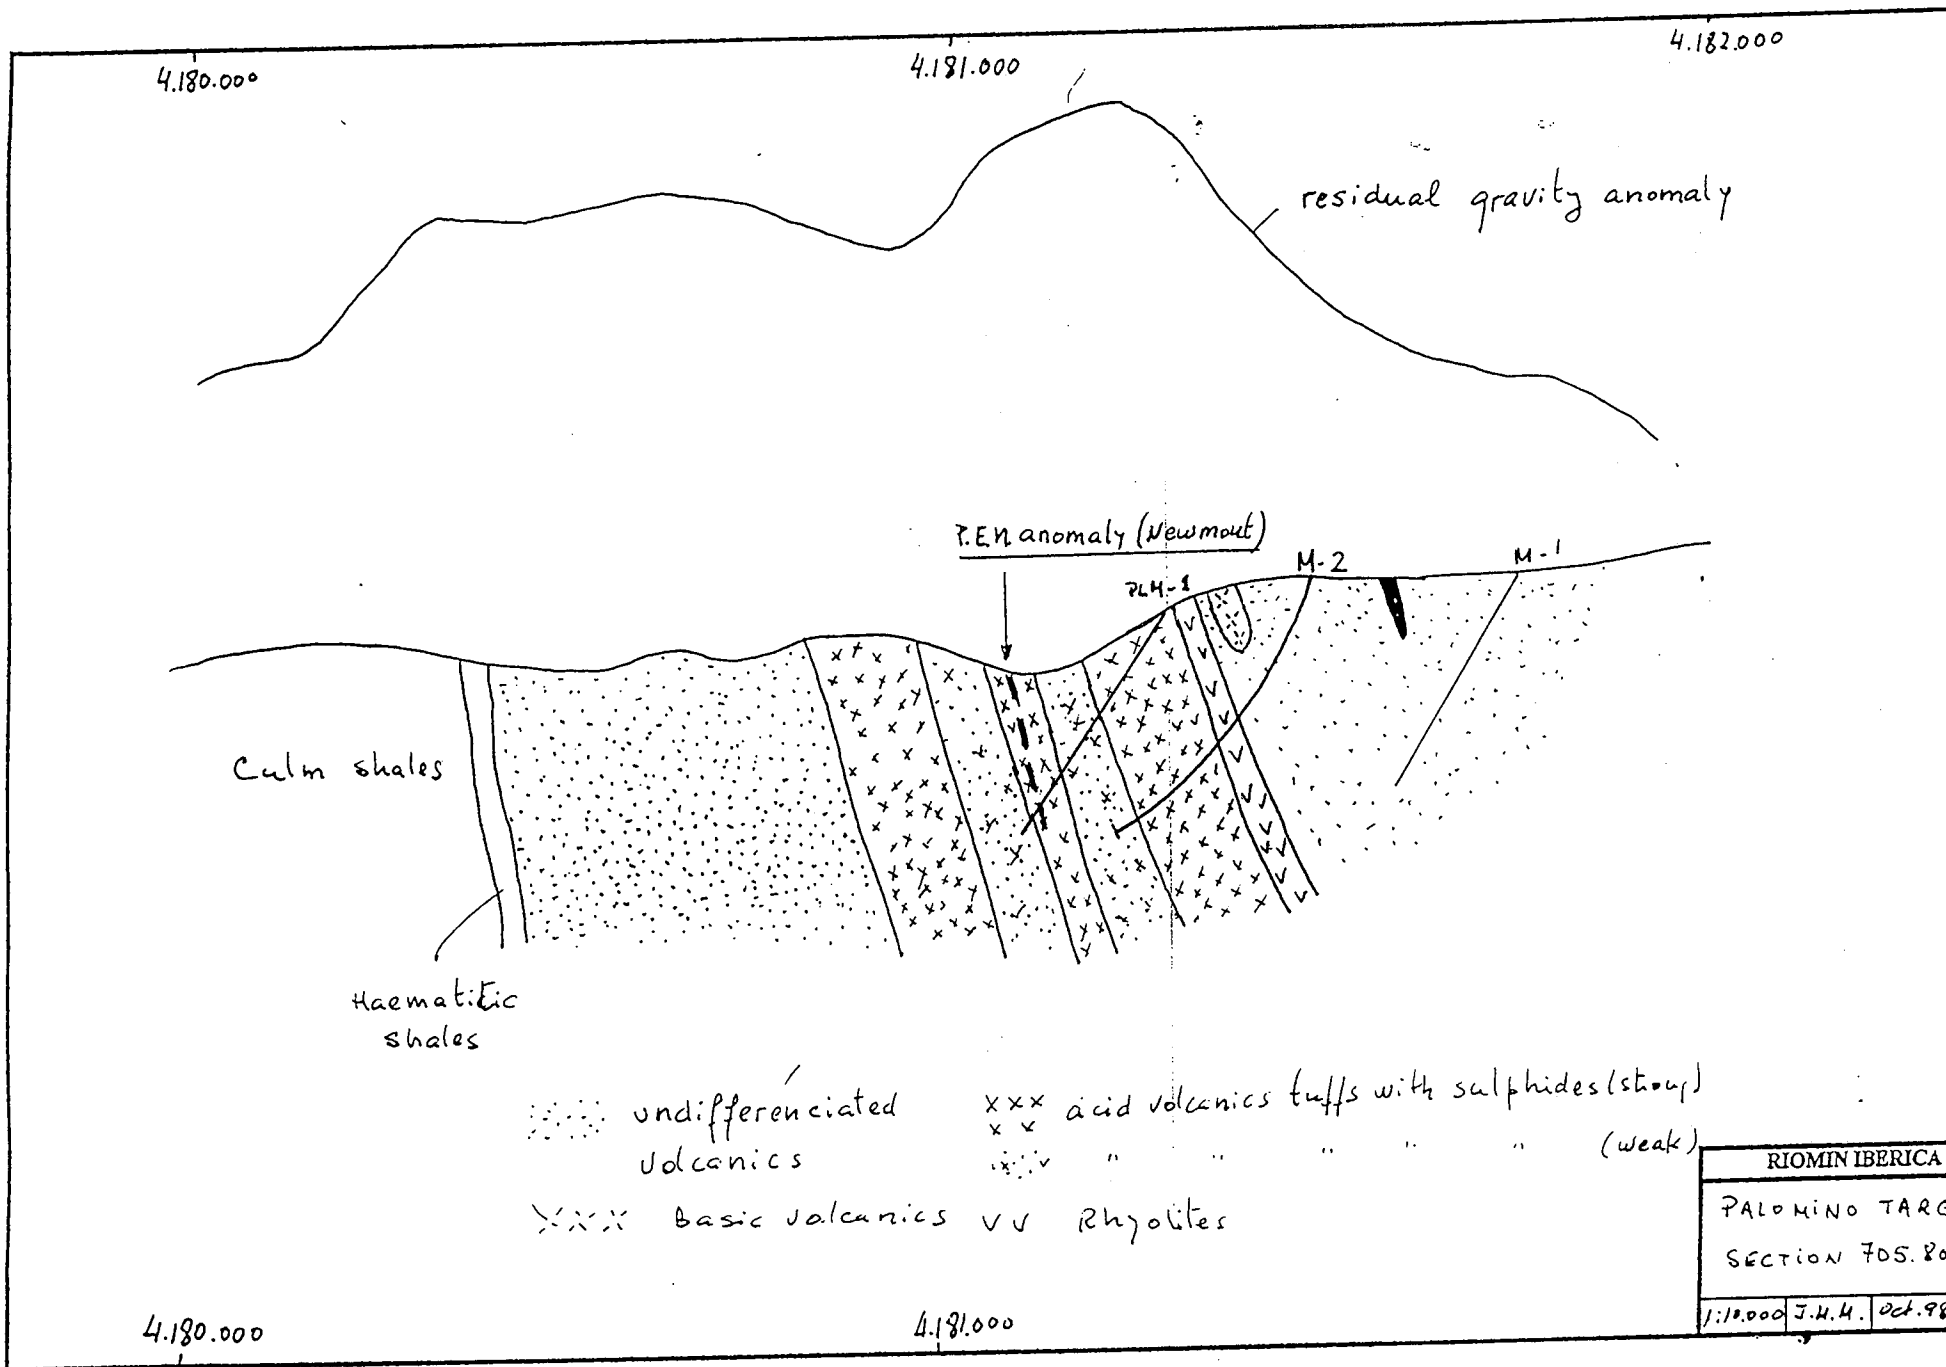 4.180.000
4.181.000
4.182.000
residual gravity anomaly
P.EM anomaly (Newmout)
PLM-1
M-2
M-1
Culm shales
Haematitic
shales
undifferenciated
volcanics
xxx acid volcanics tuffs with sulphides (strong)
" " " " (weak)
Basic volcanics
vv Rhyolites
RIOMIN IBERICA
PALOMINO TARG
SECTION 705.80
1:10.000 J.H.M. Oct.98
4.180.000
4.181.000